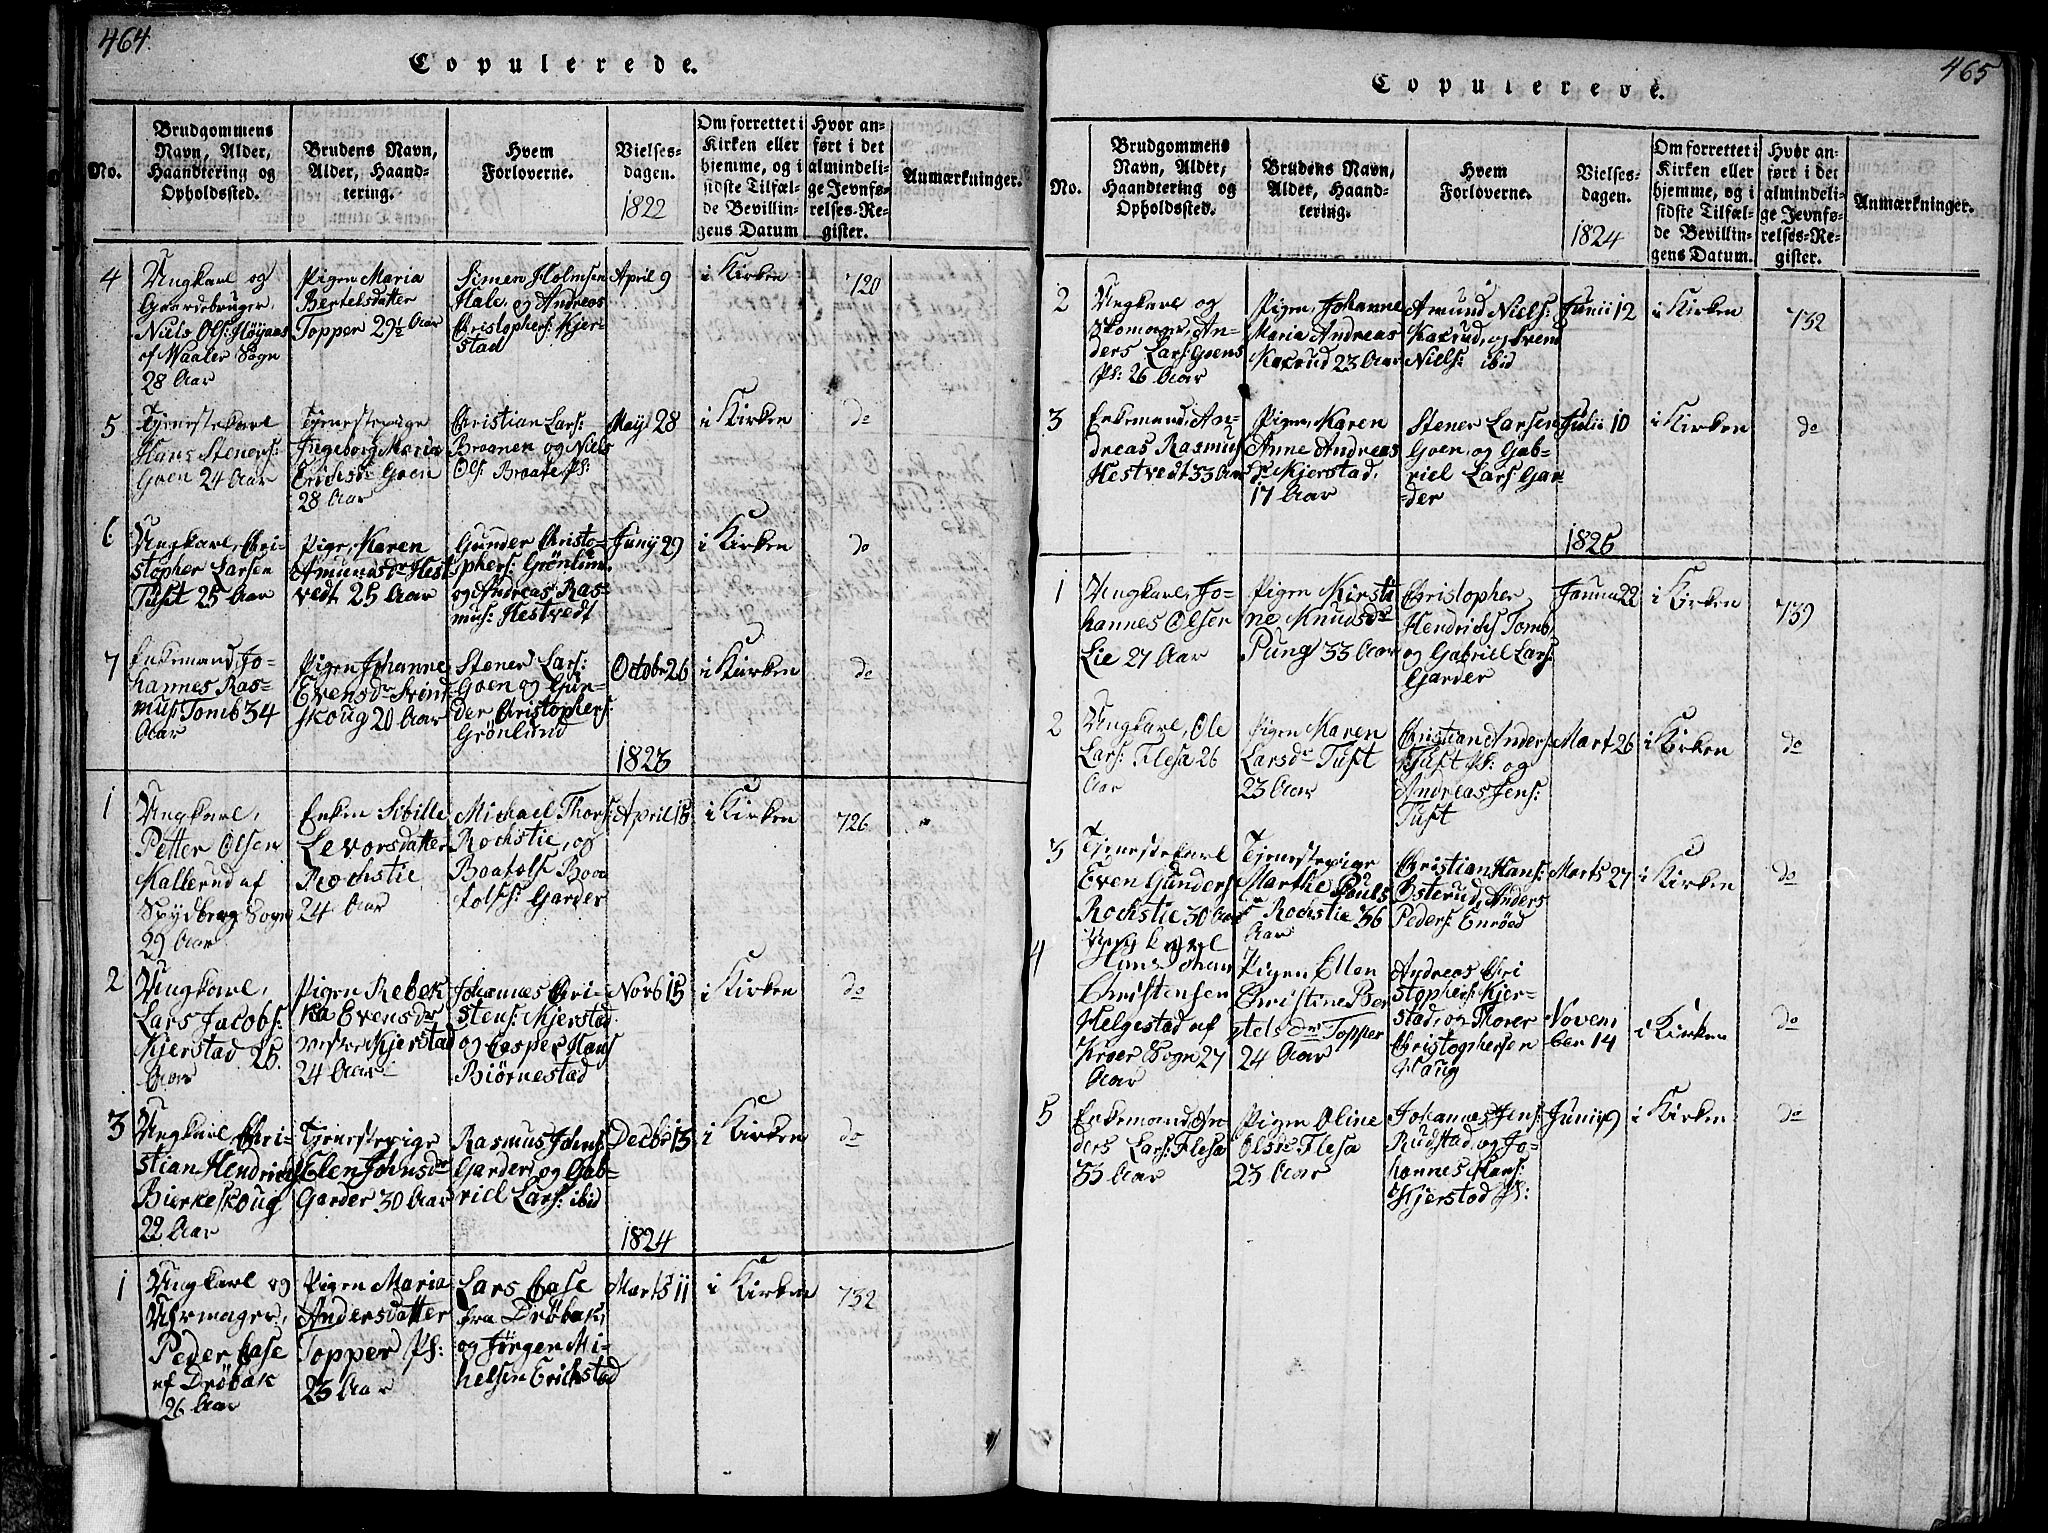 464.
Copulerede.
No.
Brudgommens
Navn, Alder,
Haandtering og
Opholdssted.
Brudens Navn,
Alder, Haand-
tering.
Hvem
Forloverne.
Vielses-
dagen.
1822
Om forrettet i
Kirken eller
hjemme, og i
sidste Tilfæl-
de Bevillin-
gens Datum
Hvor an-
ført i det
almindeli-
ge Jevnfø-
relses-Re-
gister.
Anmærkninger.
4
Ungkarl og
Gaardebruger
Niels Ols: Høyaas
af Waaler Sogn
28 Aar
Pigen Maria
Bertelsdatter
Topper 29½ Aar
Simen Holmsen
Hale, og Andreas
Christophers: Kjer-
stad
April 9
i Kirken
720
5
Tjenestekarl
Hans Steners:
Goen 24 Aar
Tjenestepige
Ingeborg Maria
Erichsdr Goen
28 Aar
Christian Lars:
Braanen og Niels
Ols: Braate Ps:
Maij 28
i Kirken
do
6
Ungkarl, Chri-
stopher Larsen
Tuft 25 Aar
Pige, Karen
Amundsdr Hest-
vedt 25 Aar
Gunder Christo-
phers: Grönlund
og Andreas Ras-
mus: Hestvedt
Junij 29
i Kirken
do
7
Enkemand, Jo-
hannes Ras-
mus: Tomb 34
Aar
Pigen Johanne
Evensdr Svend
skoug 20 Aar
Stener Lars:
Goen og Gun-
der Christophers:
Grönlund
Octobr 26
i Kirken
do
1823
1
Ungkarl,
Petter Olsen
Kallerud af
Spydberg Sogn
29 Aar
Enken Sibille
Levorsdatter
Rochstie
24 Aar
Michael Thors:
Rochstie, og
Boatolf Boa
tolfs: Garder
April 15
i Kirken
726
2
Ungkarl,
Lars Jacobs:
Kjerstad 25
Aar
Pigen Rebek
ka Evensdr
Kjerstad
24 Aar
Johannes Chri-
stens: Kjerstad
og Casper Hans
Biörnestad
Novb 15
i Kirken
do
3
Ungkarl Chri-
stian Hendrichs
Bierkeskoug
22 Aar
Tjenestepige
Elen Johnsdr
Garder 30 Aar
Rasmus Johns
Garder, og Gab-
riel Lars: ibid
Decbr 13
i Kirken
do
1824
1
Ungkarl og
Uhrmager,
Peder Case
af Dröbak
26 Aar
Pigen Maria
Andersdatter
Topper Ps:
23 Aar
Lars Case
fra Dröbak,
og Jørgen Mi-
helsen Erichstad
Marts 11
i Kirken
732
465
Copulerede.
No.
Brudgommens
Navn, Alder,
Haandtering og
Opholdssted.
Brudens Navn,
Alder, Haand-
tering.
Hvem
Forloverne.
Vielses-
dagen.
1824
Om forrettet i
Kirken eller
hjemme, og i
sidste Tilfæl-
de Bevillin-
gens Datum.
Hvor an-
ført i det
almindeli-
ge Jevnfø-
relses-Re-
gister.
Anmærkninger.
2
Ungkarl og
Skomager, An-
ders Lars: Goens
Ps: 26 Aar
Pigen, Johanne
Maria Andreas
Kaxrud 23 Aar
Amund Niels:
Kaxrud, og Svend
Niels: ibid
Junii 12
i Kirken
732
3
Enkemand, An-
dreas Rasmus
Hestvedt 33 Aar
Pigen, Karen
Anne Andreas
dr Kjerstad,
17 Aar
Stener Larsen
Goen, og Gab-
riel Lars: Gar-
der
Julii 10
i Kirken
do
1825
1
Ungkarl, Jo-
hannes Olsen
Lie 27 Aar
Pigen Kirsti
ne Knudsdr
Pung 33 Aar
Christopher
Hendrichs Tomb
og Gabriel Lars:
Garder
Janua 22
i Kirken
739
2
Ungkarl, Ole
Lars: Flesa 26
Aar
Pigen Karen
Larsdr Tuft
23 Aar
Christian Anders:
Tuft Ps: og
Andreas Jens:
Tuft
Mart 26
i Kirken
do
3
Tjenestekarl
Even Gunders
Rochstie 30 Aar
Tjenestepige
Marthe Pouls
dr Rochstie 36
Aar
Christian Hans:
Österud, Anders
Peders: Enröed
Marts 27
i Kirken
do
4
Ungkarl
Hans Johan
Christensen
Helgestad af
Kroer Sogn 27
Aar
Pigen Ellen
Christine Ber
telsdr Topper
24 Aar
Andreas Chri
stophers: Kjer-
stad, og Thorer
Christophersen
Haug
Novem
ber 14
i Kirken
do
5
Enkemand An
ders Lars: Flesa
33 Aar
Pigen Oline
Olsdr Flesa
23 Aar
Johannes Jens:
Rudstad, og Jo-
hannes Hans:
Kjerstad Ps:
Junii 9
i Kirken
do